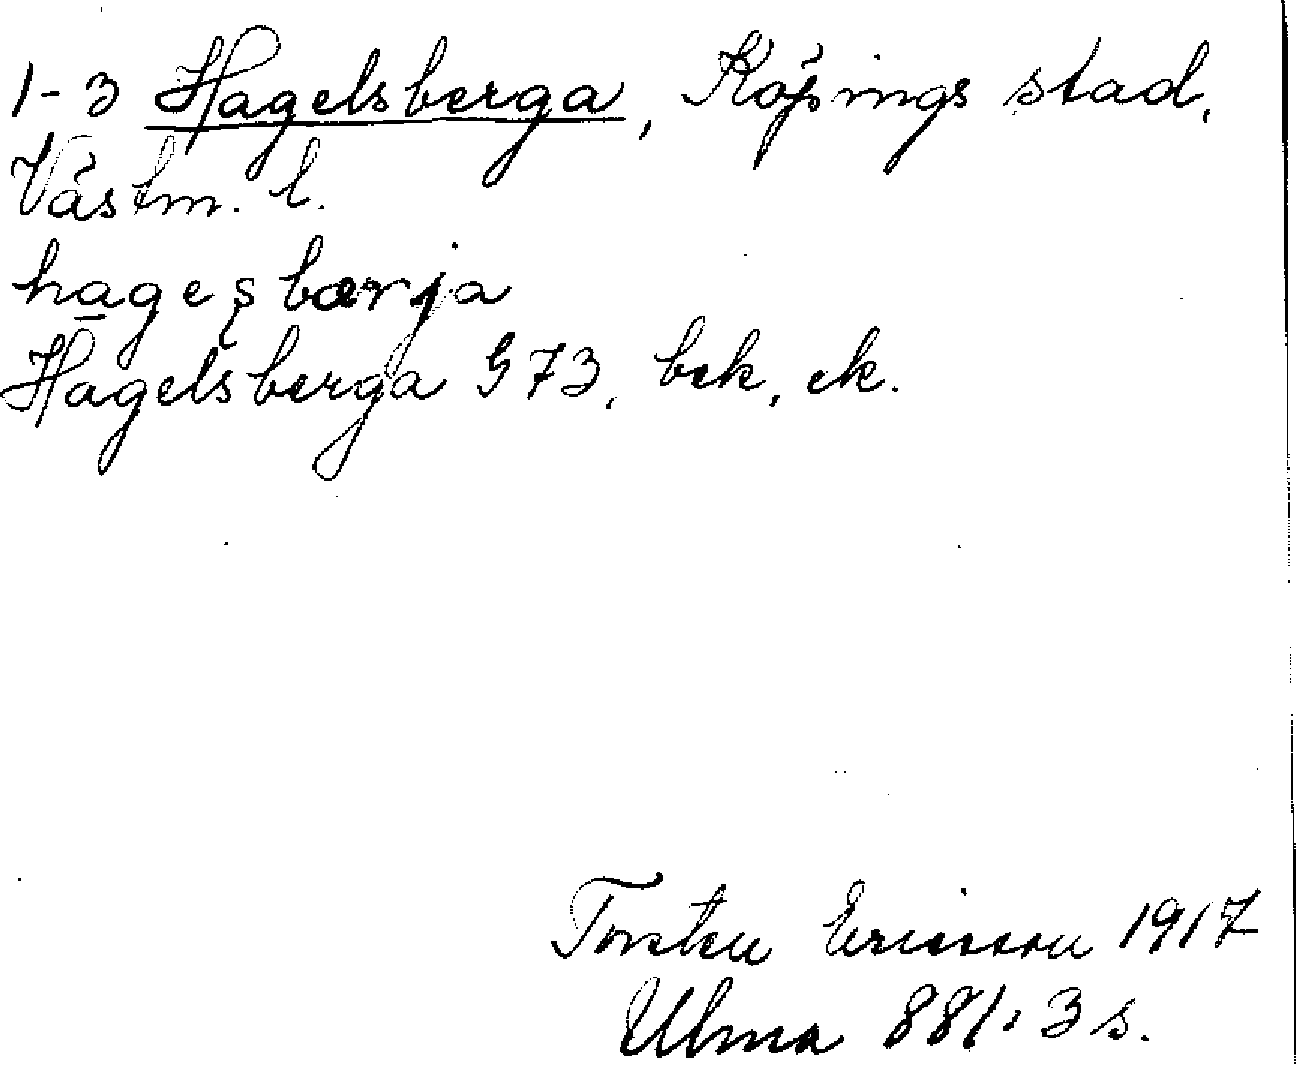 1-3 Hagelsberga, Köpings stad,
Västm. l.
hagesbærja
Hagelsberga G 73, bek, ek.
Torsten Ericsson 1917
Ulma 881:3 s.